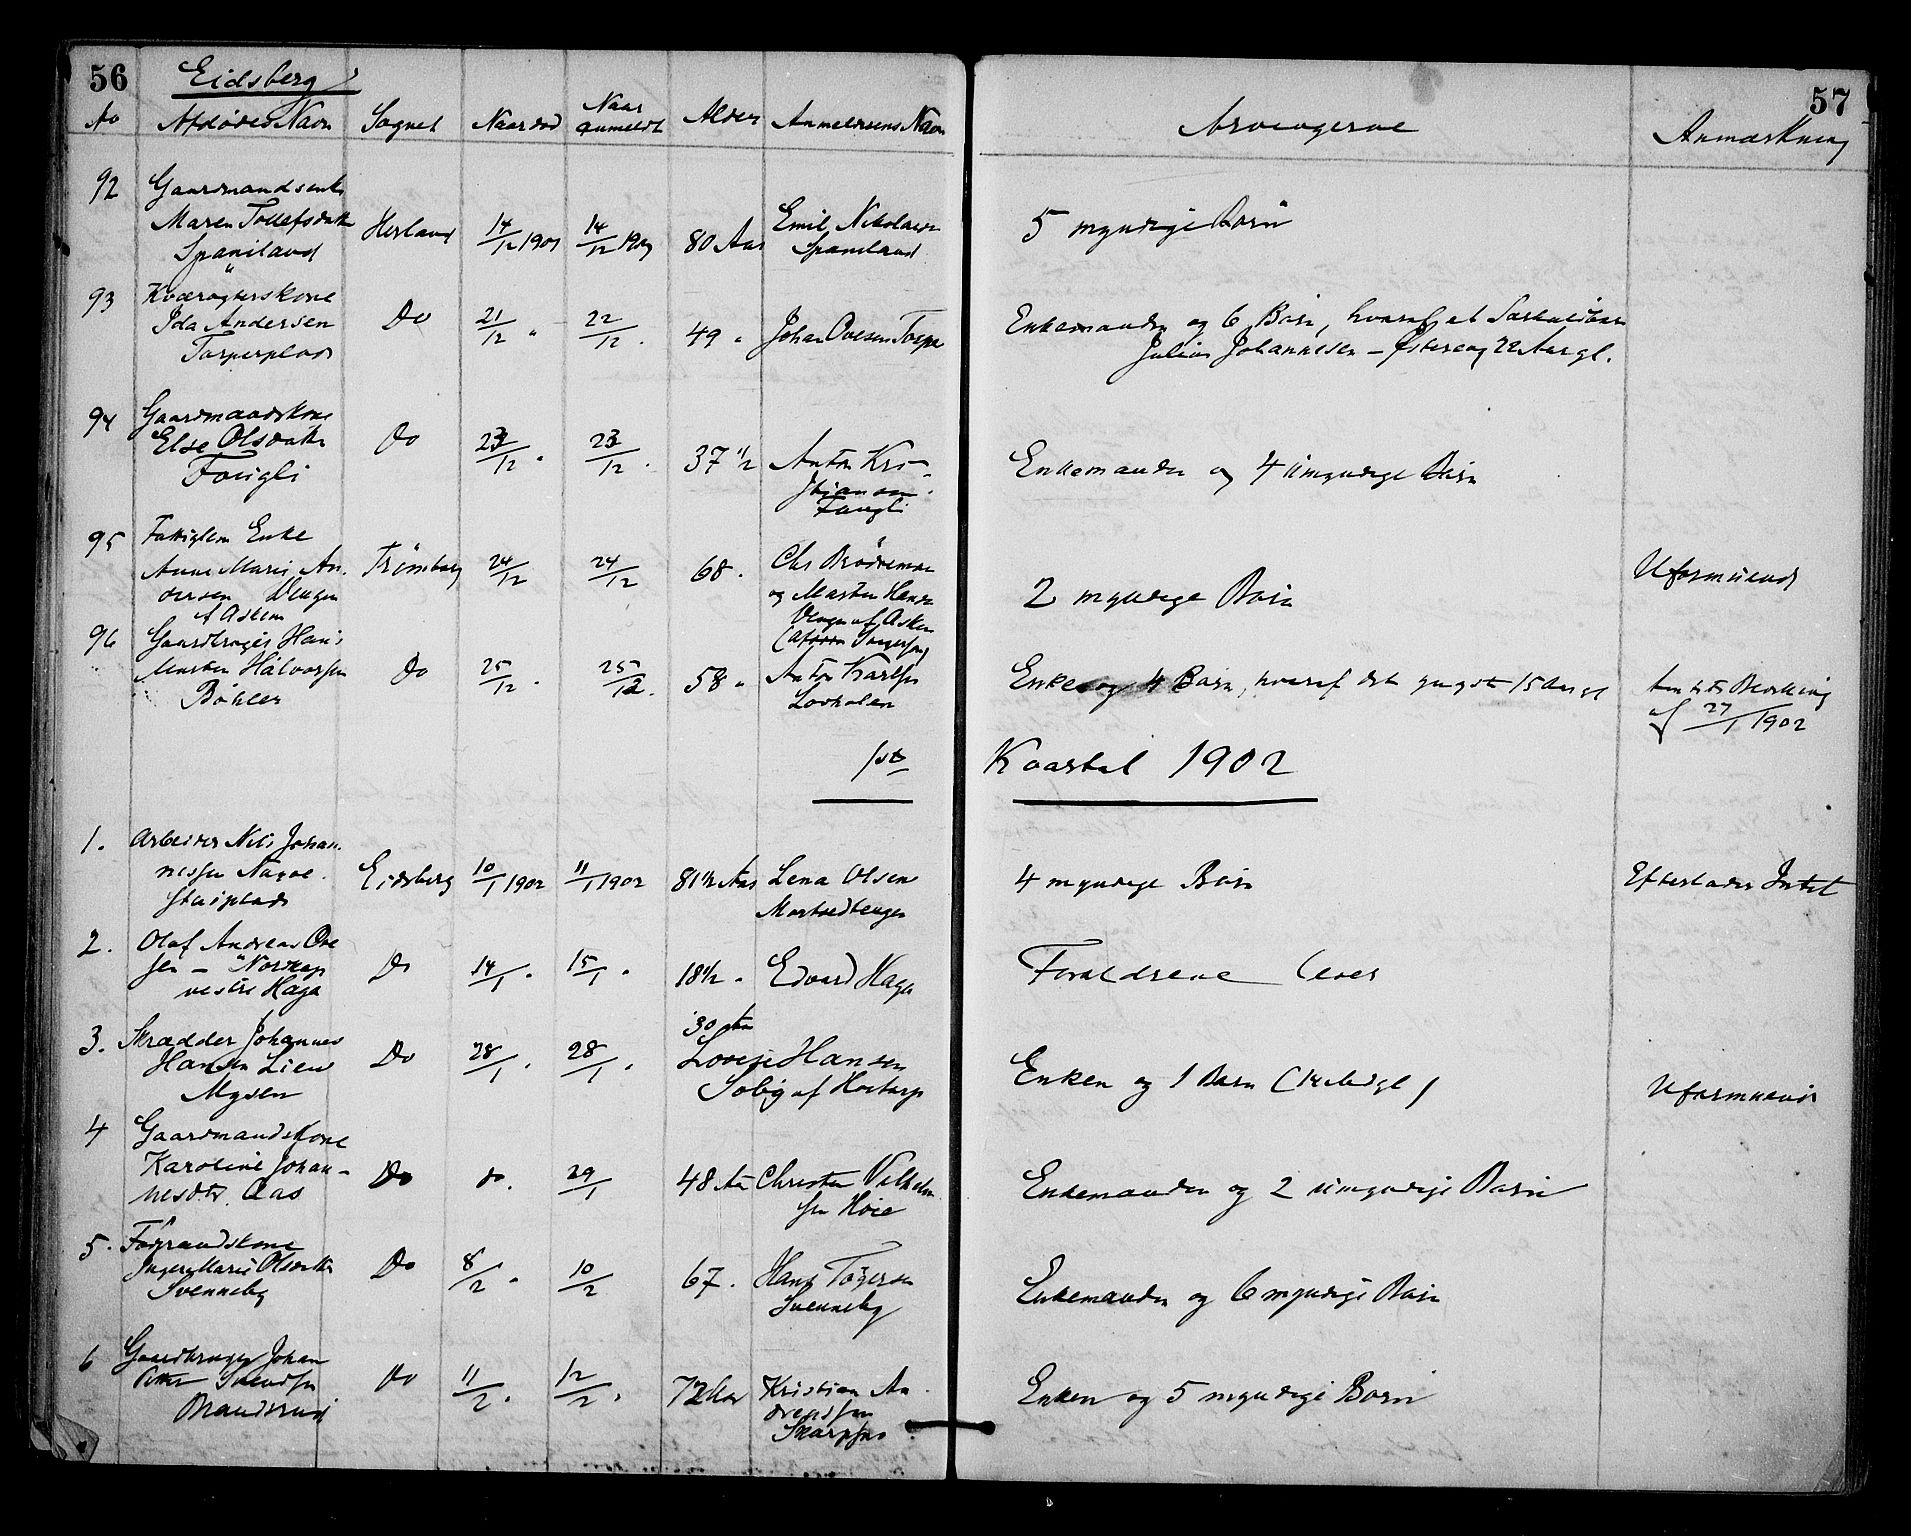 56 Eidsberg 57
No Afdødes Navn Sognet Naar død Naar anmeldt Alder Anmelderens Navn Arvingerne Anmærkning
92 Gaardmandsenke
Maren Tollefsdatter Herland 14/12 1901 14/12 1901 80 Aar Emil Nikolaisen 5 myndige Børn
Spaniland Spaniland
93 Kværagterskone
Ida Andersen Do 21/12 " 22/12 " 49 " Johan Ovesen Torper Enkemanden og 6 Børn, hvoraf et Særkuldbarn
Torperplads Julius Johannesen – Østereng 22 Aar gl.
94 Gaardmandskone
Else Olsdatter Do 23/12 " 23/12 " 37 1/2 Anton Kri- Enkemanden og 4 umyndige Børn
Fougli stiansen
Fougli
95 Fattiglem Enke
Anne Marie An- Trømborg 24/12 24/12 68 " Chr Brødremoe 2 myndige Børn Uformuende
dersen Vengen og Martin Hansen
af Askim Vengen af Askim
96 Gaardbruger Hans
Martin Halvorsen Do 25/12 " 25/12 " 58 " Anton Karlsen Enke og 4 Børn, hvoraf det yngste 15 Aar gl Amtets Bevilling
Bøhler af 27/1 1902
1ste Kvartal 1902
1. Arbeider Nils Johan-
nessen Eidsberg 10/1 1902 11/1 1902 81 1/2 Aar Lena Olsen 4 myndige Børn Efterlader Intet
2. Olaf Andreas Ove
sen – Do 14/1 " 15/1 " 18 1/2 " Edvard Haga Forældrene lever
vestre Haga
3. Skrædder Johannes 30 Aar
Hansen Lien Do 28/1 " 28/1 " Lovise Hansen Enken og 1 Barn Uformuende
Mysen Solbg af Hortorp
4 Gaardmandskone
Karoline Johan- Do do. 29/1 48 Aar Christen Vilhelm Enkemanden og 2 umyndige Børn
nesdtr. Aas sen Høie
5. Fødraadskone
Inger Marie Olsdatter Do 8/2 " 10/2 67 " Hans Tøgersen Enkemanden og 6 myndige Børn
Svenneby Svenneby
6 Gaardbruger Johan
Petter Svendsen Do 11/2 " 12/2 " 72 Aar Kristian An- Enken og 5 myndige Børn
Brandsrud drendsen